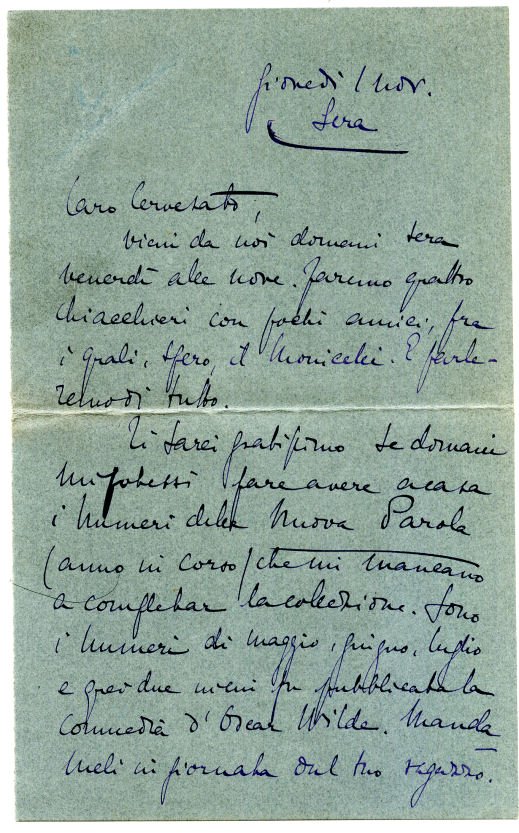 Giovedì 1 nov.
Sera
Caro Cervesato,
vieni da noi domani sera
venerdì alle nove. Faremo quattro
chiacchieri con pochi amici, fra
i quali, spero, il Monicelli. E parle-
remo di tutto.
Ti sarei gratissimo se domani
mi potessi fare avere a casa
i numeri della Nuova Parola
(anno in corso) che mi mancano
a completar la collezione. Sono
i numeri di maggio, giugno, luglio
e quei due in cui fu pubblicata la
commedia d'Oscar Wilde. Manda
meli in giornata dal tuo ragazzo.